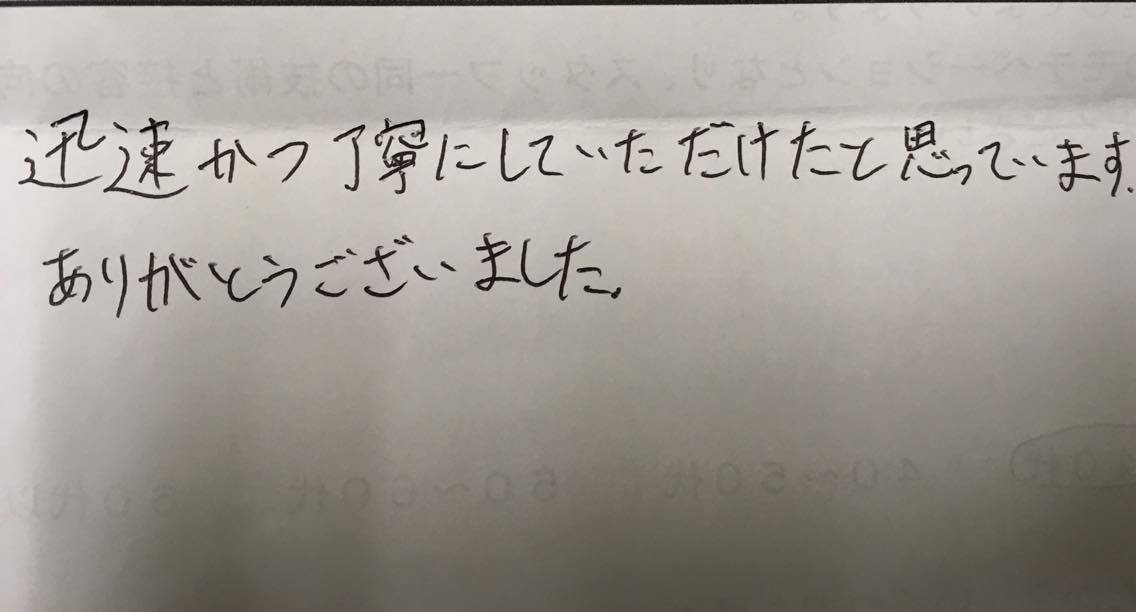 迅速かつ丁寧にしていただけたと思っています.
ありがとうございました.